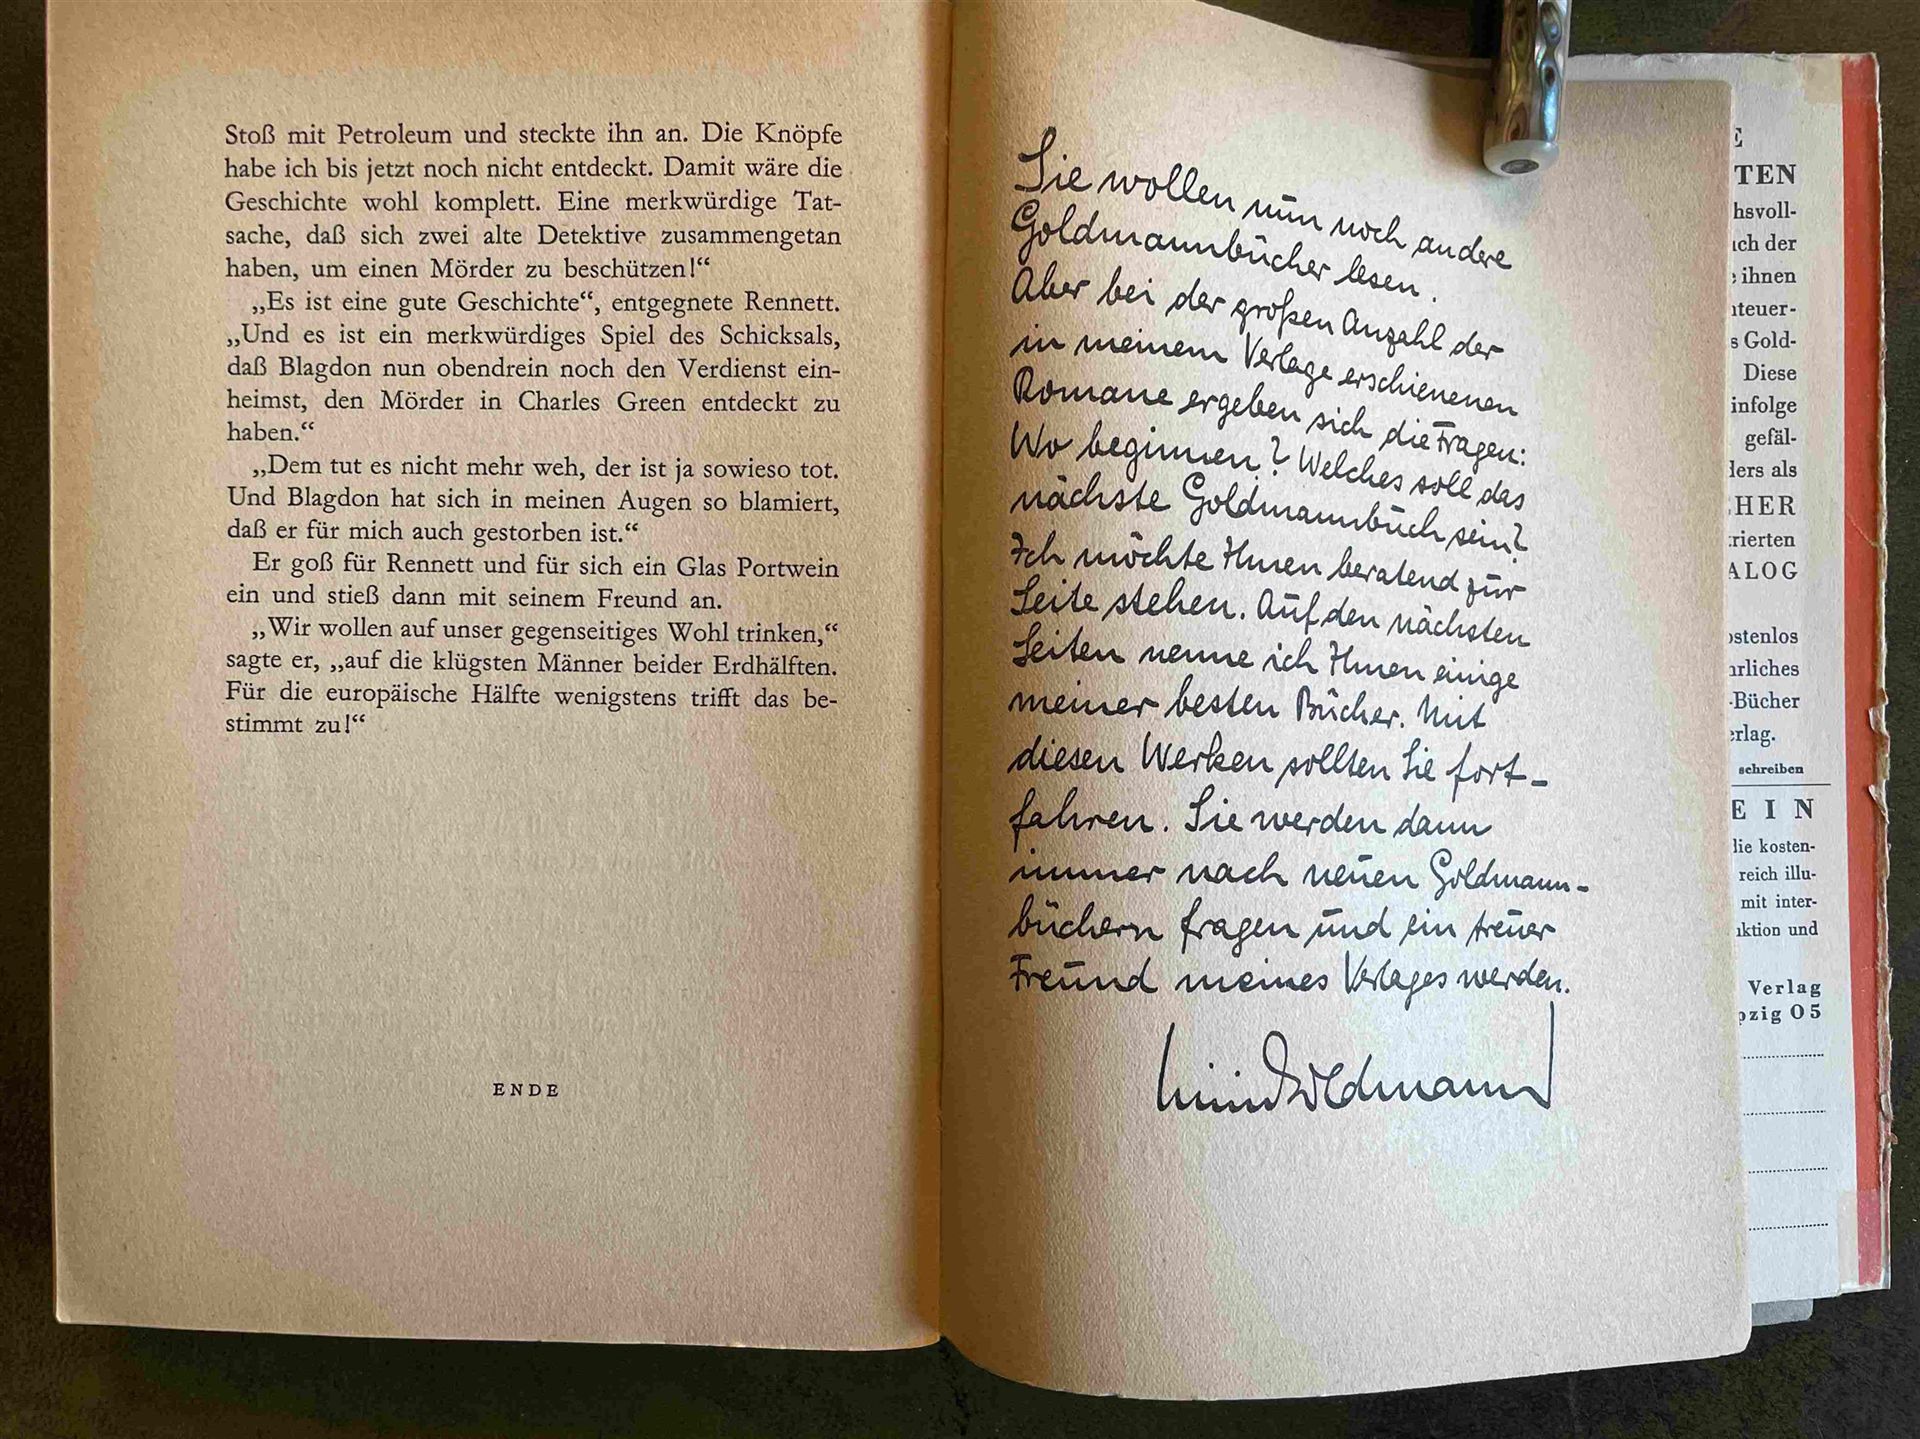 Stoß mit Petroleum und steckte ihn an. Die Knöpfe
habe ich bis jetzt noch nicht entdeckt. Damit wäre die
Geschichte wohl komplett. Eine merkwürdige Tat-
sache, daß sich zwei alte Detektive zusammengetan
haben, um einen Mörder zu beschützen!“
„Es ist eine gute Geschichte“, entgegnete Rennett.
„Und es ist ein merkwürdiges Spiel des Schicksals,
daß Blagdon nun obendrein noch den Verdienst ein-
heimst, den Mörder in Charles Green entdeckt zu
haben.“
„Dem tut es nicht mehr weh, der ist ja sowieso tot.
Und Blagdon hat sich in meinen Augen so blamiert,
daß er für mich auch gestorben ist.“
Er goß für Rennett und für sich ein Glas Portwein
ein und stieß dann mit seinem Freund an.
„Wir wollen auf unser gegenseitiges Wohl trinken,“
sagte er, „auf die klügsten Männer beider Erdhälften.
Für die europäische Hälfte wenigstens trifft das be-
stimmt zu!“
ENDE
Sie wollen nun noch andere
Goldmannbücher lesen.
Aber bei der großen Anzahl der
in meinem Verlage erschienenen
Romane ergeben sich die Fragen:
Wo beginnen? Welches soll das
nächste Goldmannbuch sein?
Ich möchte Ihnen beratend zur
Seite stehen. Auf den nächsten
Seiten nenne ich Ihnen einige
meiner besten Bücher. Mit
diesen Werken sollten Sie fort-
fahren. Sie werden dann
immer nach neuen Goldmann-
büchern fragen und ein treuer
Freund meines Verlages werden.
Goldmann
E
TEN
hsvoll-
ich der
ihnen
nteuer-
s Gold-
Diese
infolge
gefäl-
ders als
CHER
trierten
ALOG
ostenlos
hrliches
-Bücher
erlag.
schreiben
EIN
die kosten-
reich illu-
mit inter-
aktion und
Verlag
pzig O 5